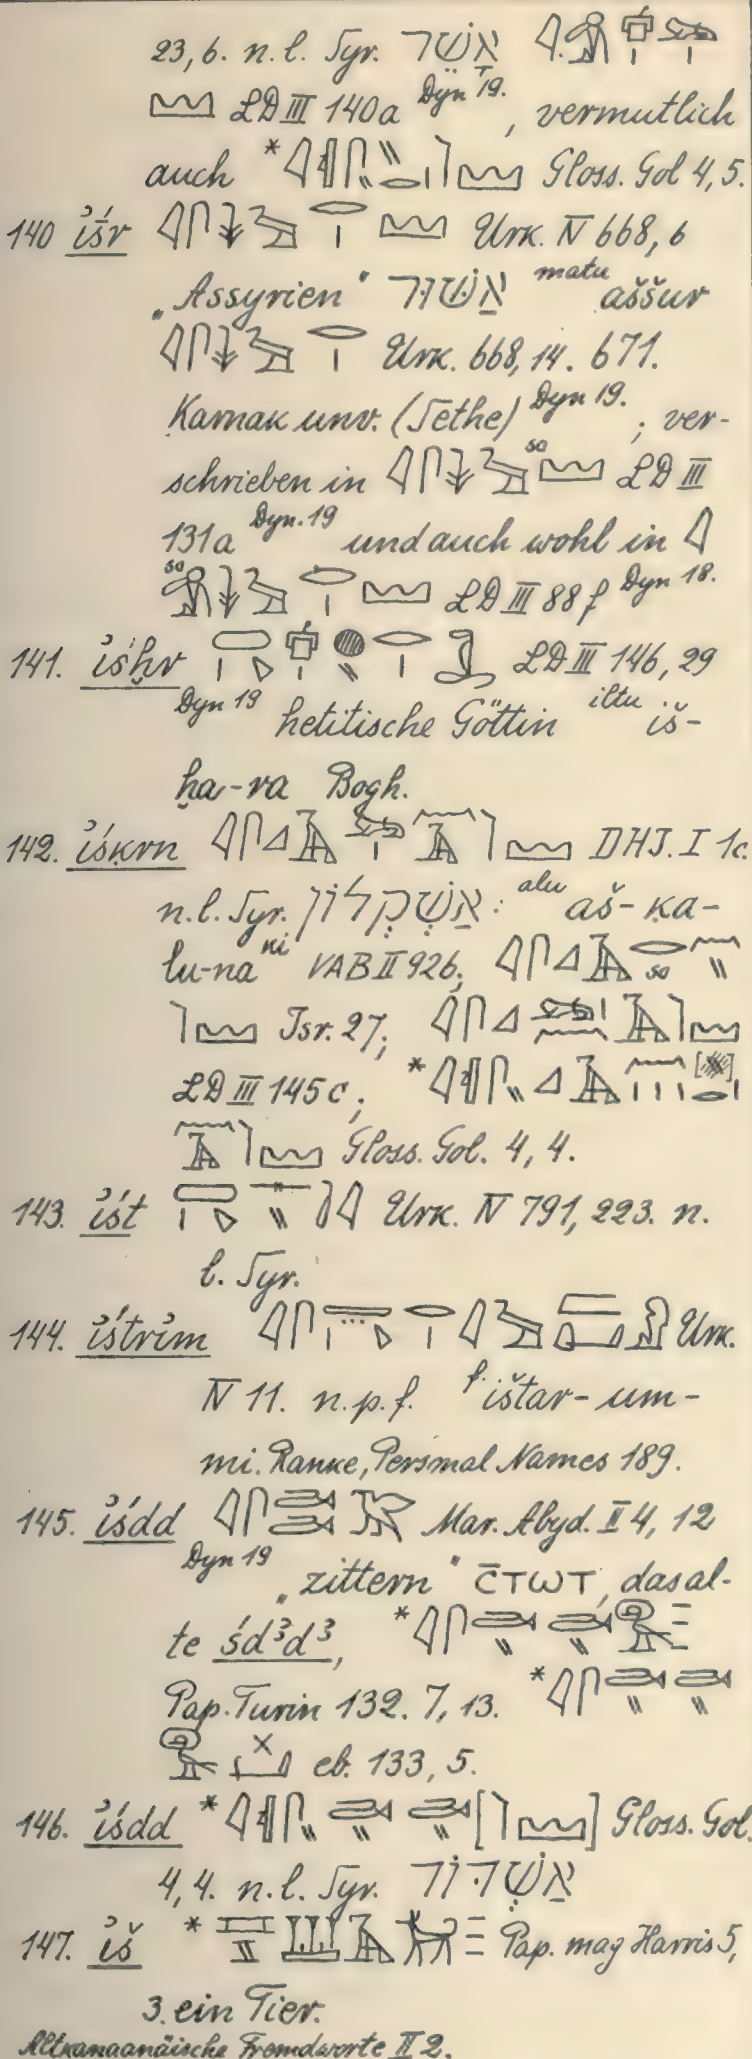 23,6. n. l. Syr. אָשֵׁר
LD III 140a Dyn 19., vermutlich
auch * Gloss. Gol 4,5.
140 ỉšr Urk. IV 668, 6
„Assyrien“ אַשּׁוּר matu aššur
Urk. 668, 14. 671.
Karnak unv. (Sethe) Dyn 19. ; ver-
schrieben in so LD III
131a Dyn. 19 und auch wohl in
so LD III 88f Dyn 18.
141. ỉśḫr LD III 146, 29
Dyn 19 hetitische Göttin iltu iš-
ḫa-ra Bogh.
142. ỉśḳrn DHJ. I 1c.
n. l. Syr. אַשְׁקְלוֹן : alu aš-ḳa-
lu-na ki VAB II 926; so
Isr. 27;
LD III 145c; *
Gloss. Gol. 4, 4.
143. ỉśt Urk. IV 791, 223. n.
l. Syr.
144. ỉśtrỉm Urk.
IV 11. n. p. f. f. ištar-um-
mi. Ranke, Personal Names 189.
145. ỉśdd Mar. Abyd. II 4, 12
Dyn 19 „zittern“ ⲥ̄ⲧⲱⲧ, das al-
te śdꜣdꜣ, *
Pap. Turin 132. 7, 13. *
eb. 133, 5.
146. ỉśdd * [ ] Gloss. Gol.
4, 4. n. l. Syr. אַשְׁדּוֹד
147. ỉš * Pap. mag Harris 5,
3. ein Tier.
Altkanaanäische Fremdworte II 2.